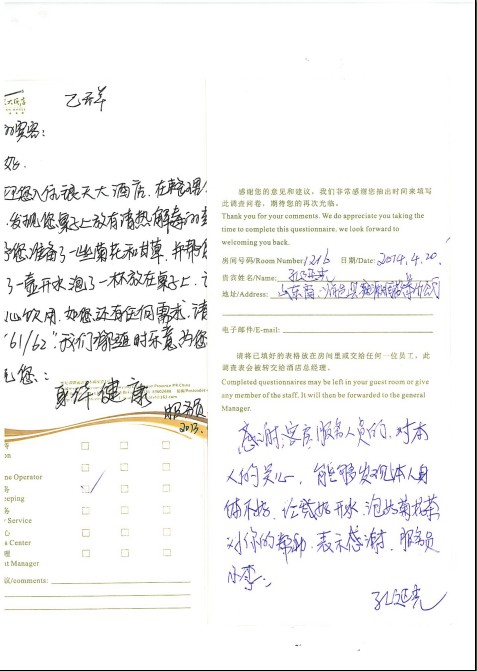 大酒店
的宾客:
您入住 天大酒店. 在
发现您桌子上放有清热解毒的
您准备了一些菊花和甘草, 并帮
了一壶开水泡了一杯放在桌子上,
心饮用. 如您还有任何需求, 请
"61/62" 我们 随时乐意为您
祝您:
身体健康
服务员
2013.
ne Operator
务
eeping
务
Service
心
s Center
理
nt Manager
议/comments:
感谢您的意见和建议。我们非常感谢您抽出时间来填写
此调查问卷, 期待您的再次光临。
Thank you for your comments. We do appreciate you taking the
time to complete this questionnaire. we look forward to
welcoming you back.
房间号码/Room Number 1216 日期/Date: 2014.4.20.
贵宾姓名/Name: 孔延光
地址/Address: 山东省
电子邮件/E-mail:
请将已填好的表格放在房间里或交给任何一位员工, 此
调查表会被转交给酒店总经理。
Completed questionnaires may be left in your guest room or give
any member of the staff. It will then be forwarded to the general
Manager.
感谢客房服务人员的, 对本
人的关心, 能够发现本人身
体不好, 给我打开水 泡好菊花茶
对你的帮助 表示感谢. 服务员
小李.
孔延光